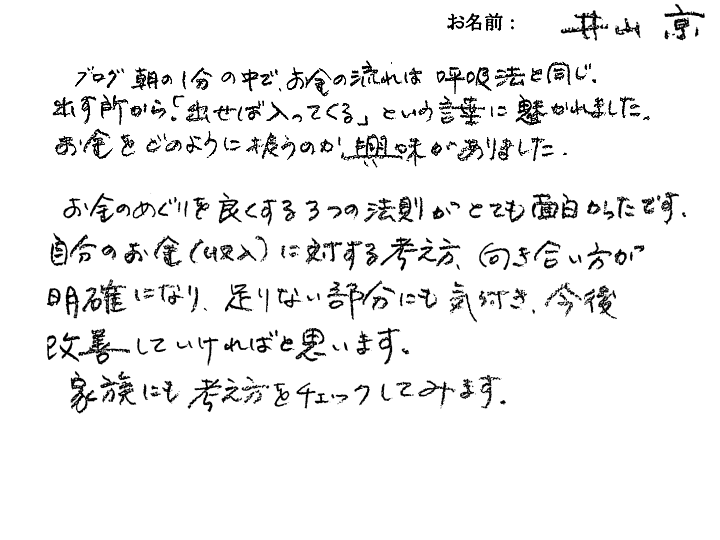 お名前: 井山 京
ブログ朝の1分の中で、お金の流れは呼吸法と同じ。
出す所から。「出せば入ってくる」という言葉に魅かれました。
お金をどのように扱うのか、興味がありました。
お金のめぐりを良くする3つの法則がとても面白かったです。
自分のお金(収入)に対する考え方、向き合い方が
明確になり、足りない部分にも気付き、今後
改善していければと思います。
家族にも考え方をチェックしてみます。